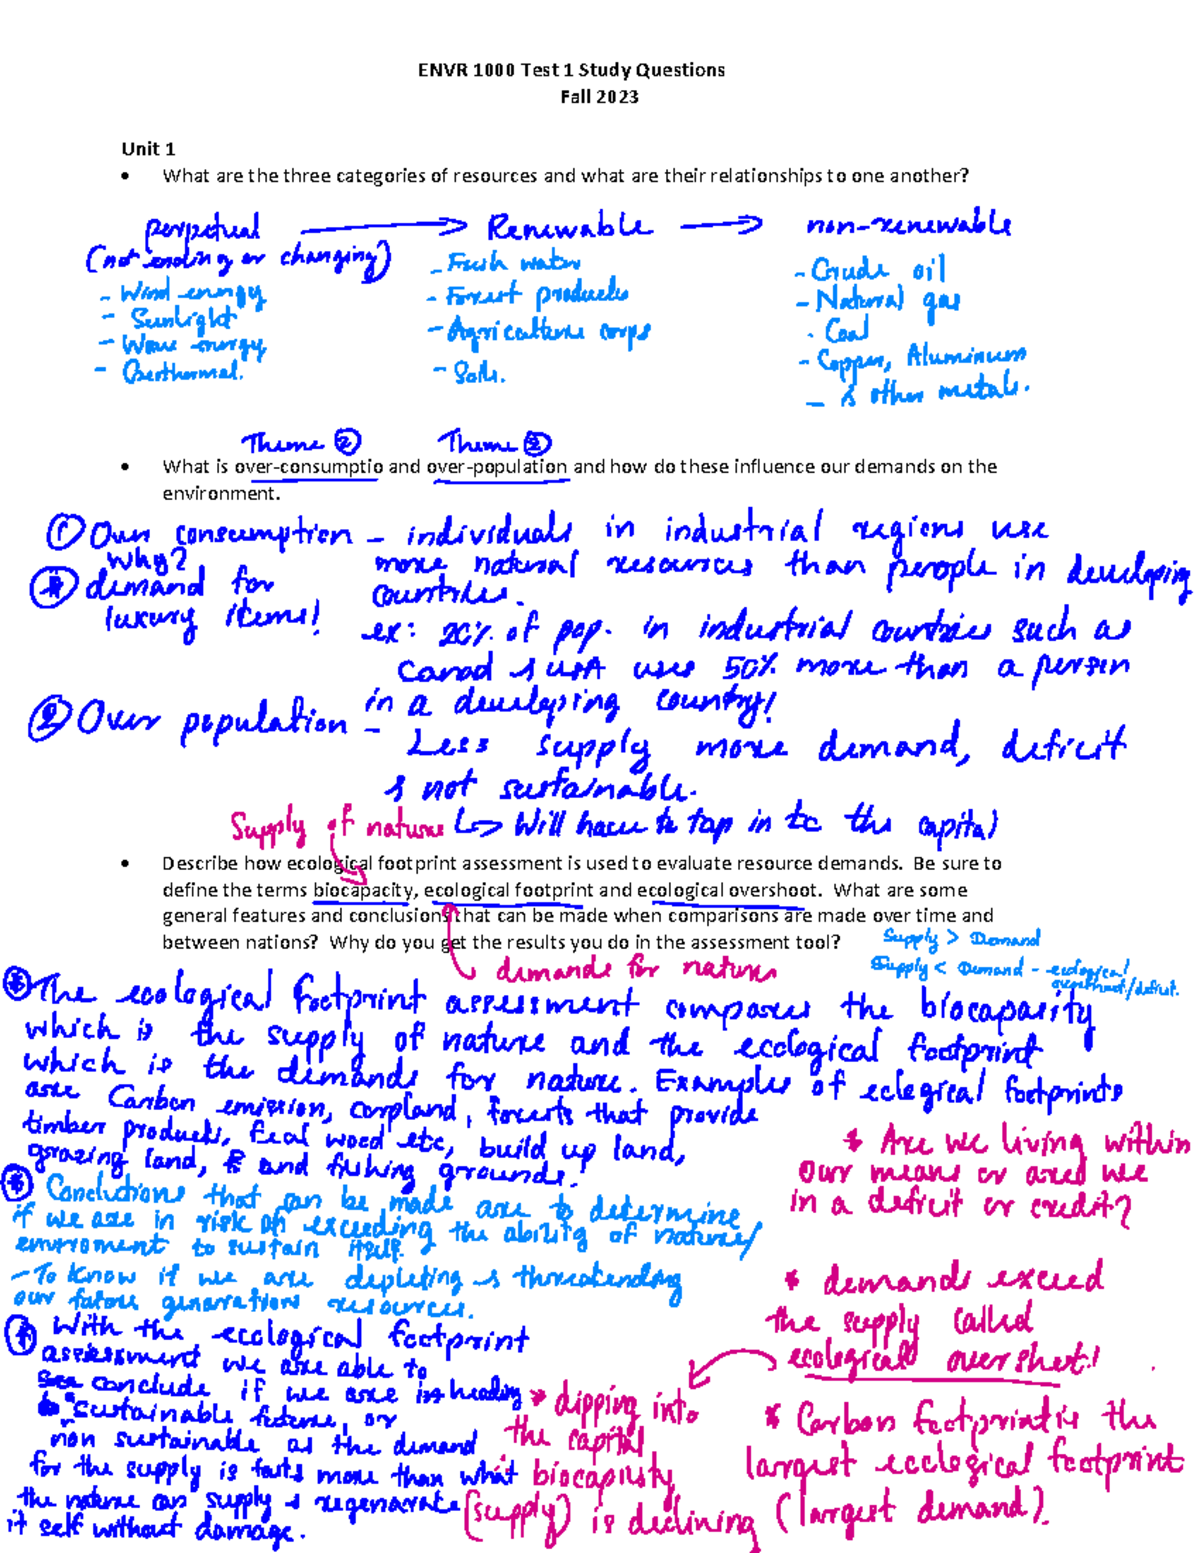 ENVR 1000 Test 1 Study Questions
Fall 2023
Unit 1
• What are the three categories of resources and what are their relationships to one another?
perpetual → Renewable → non-renewable
(not ending or changing)
- Wind energy
- Sunlight
- Wave energy
- Geothermal.
- Fresh water
- Forest products
- Agriculture corps
- Soils.
- Crude oil
- Natural gas
· Coal
- Copper, Aluminum
- & other metals.
Theme ② Theme ②
• What is over-consumptio and over-population and how do these influence our demands on the
environment.
① Over consumption - individuals in industrial regions use
more natural resources than people in developing
countries.
why?
demand for
luxury items!
ex: 20% of pop. in industrial countries such as
Canad & USA uses 50% more than a person
in a developing country!
② Over population -
Less supply more demand, deficit
& not sustainable.
↳ Will have to tap in to the capital
Supply of nature
• Describe how ecological footprint assessment is used to evaluate resource demands. Be sure to
define the terms biocapacity, ecological footprint and ecological overshoot. What are some
general features and conclusions that can be made when comparisons are made over time and
between nations? Why do you get the results you do in the assessment tool?
Supply > Demand
Supply < Demand - ecological
overshoot/deficit.
demands for nature
The ecological footprint assessment compares the biocapacity
which is the supply of nature and the ecological footprint
which is the demands for nature. Examples of eclogical footprints
are Carbon emission, corpland, forests that provide
timber products, feul wood etc, build up land,
grazing land, and fishing grounds!
* Are we living within
our means or ared we
in a deficit or credit?
Conclutions that can be made are to determine
if we are in risk of exceeding the ability of nature/
enviroment to sustain itself.
- To know if we are depleting & threatending
our future generations resources.
* demands exceed
the supply called
ecological overshot!
With the ecological footprint
assessment we are able to
conclude if we are in heading
sustainable future, or
non sustainable as the demand
for the supply is more than what
the nature can supply & regenerate
it self without damage.
* dipping into
the capital
biocapisity
(supply) is declining
* Carbon footprint is the
largest ecological footprint
(largest demand).